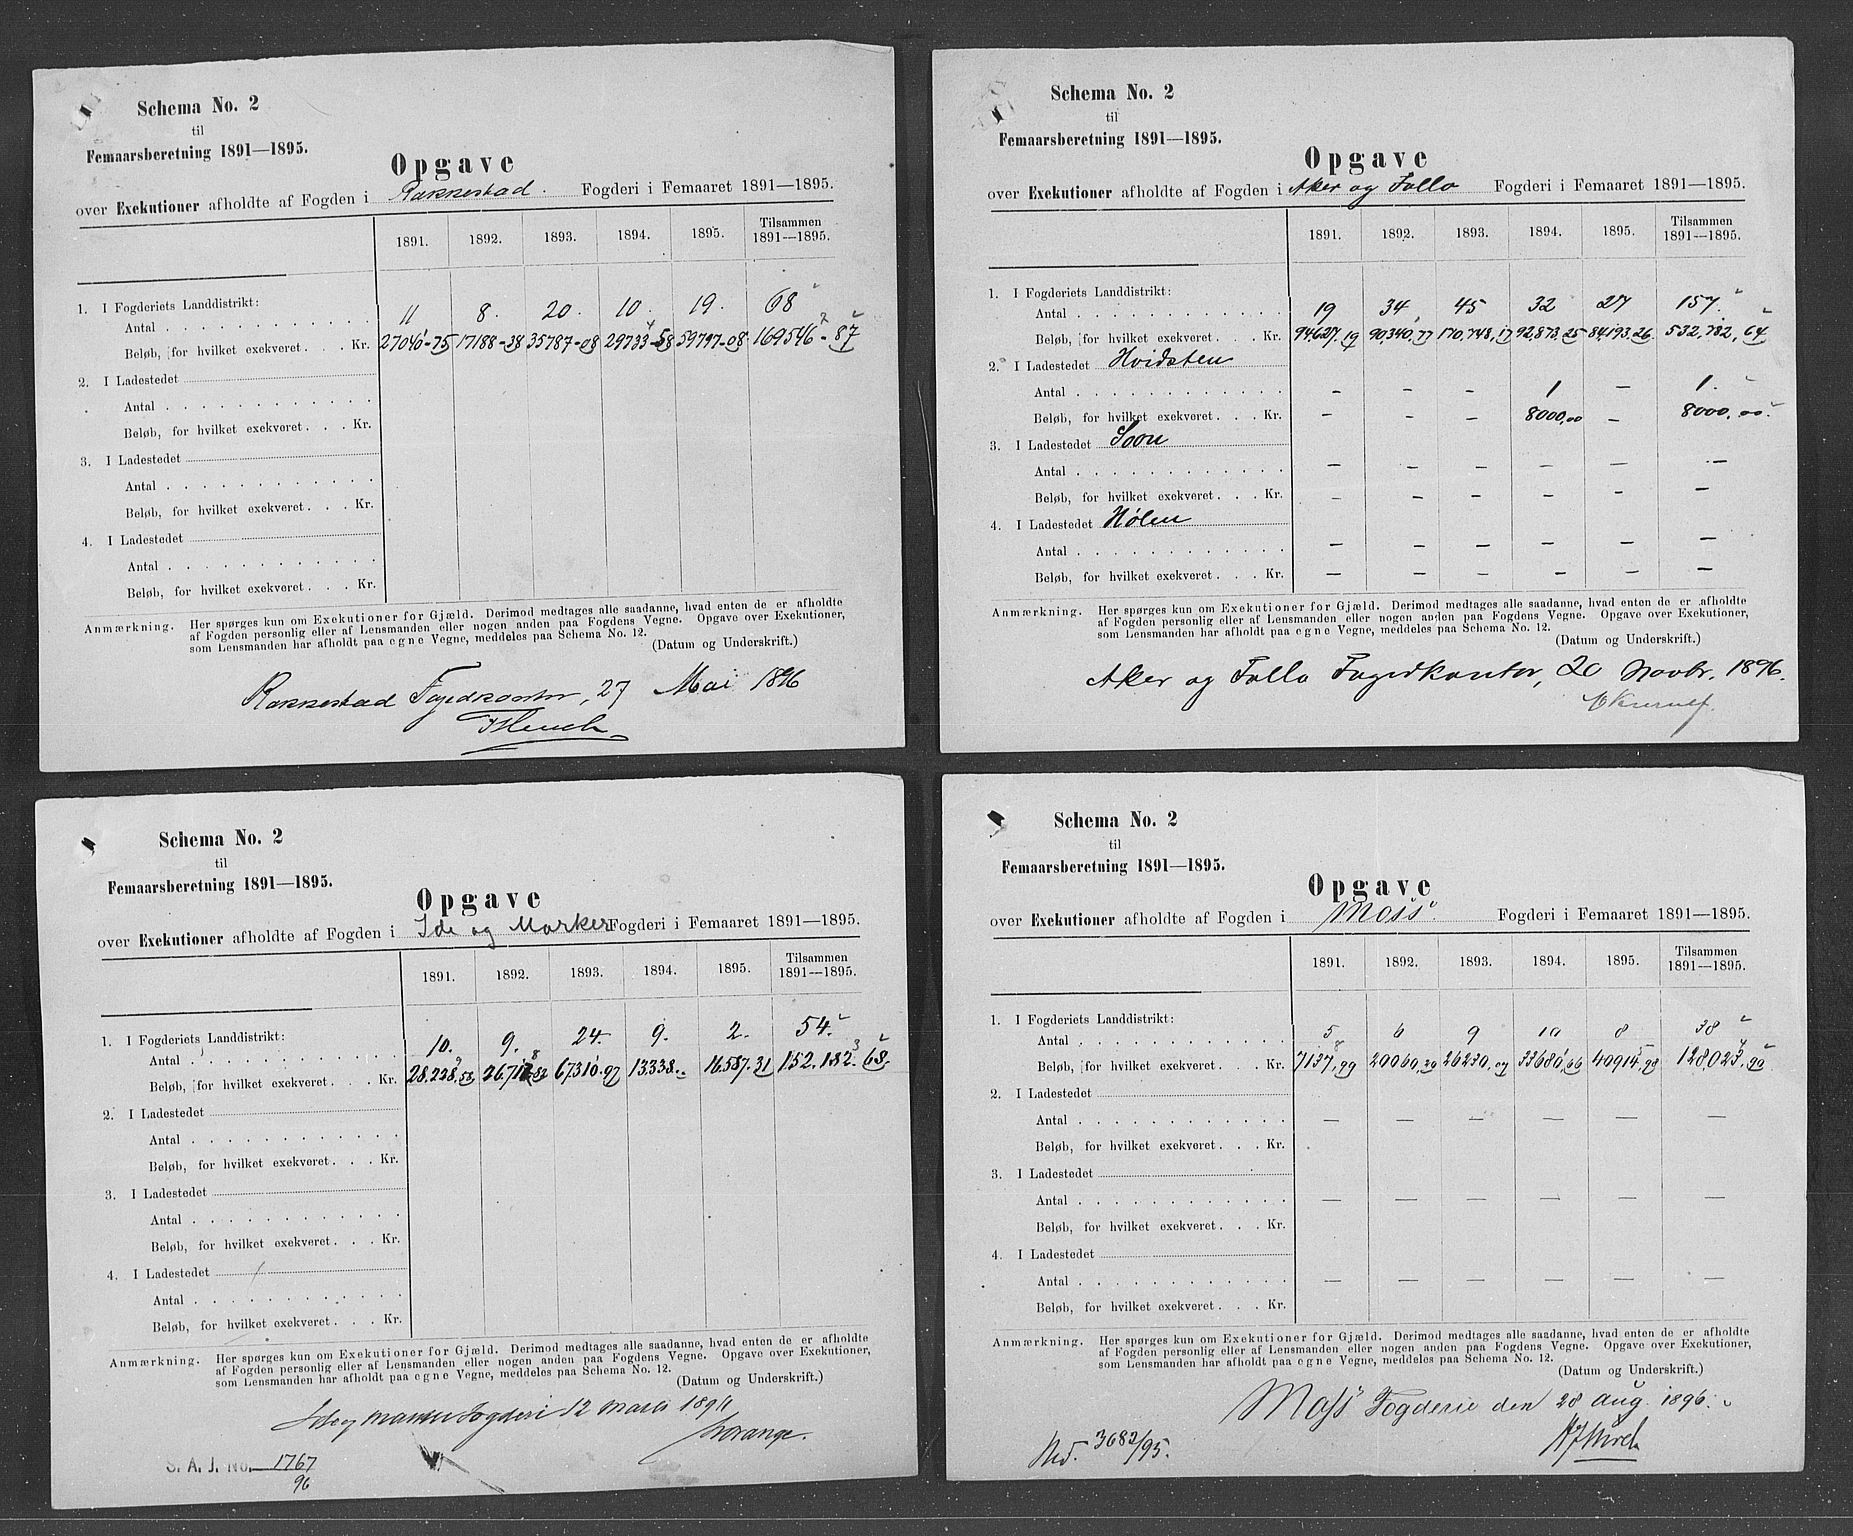 Schema No. 2
til
Femaarsberetning 1891—1895.
Opgave
over Exekutioner afholdte af Fogden i Rakkestad. Fogderi i Femaaret 1891—1895.
1891. 1892. 1893. 1894. 1895. Tilsammen 1891—1895.
1. I Fogderiets Landdistrikt:
Antal 11 8. 20. 10. 19. 68
Beløb, for hvilket exekveret Kr. 27040-75 17188-38 35787-08 29733-58 59797-08 169546-87
2. I Ladestedet
Antal
Beløb, for hvilket exekveret Kr.
3. I Ladestedet
Antal
Beløb, for hvilket exekveret Kr.
4. I Ladestedet
Antal
Beløb, for hvilket exekveret Kr.
Anmærkning. Her spørges kun om Exekutioner for Gjæld. Derimod medtages alle saadanne, hvad enten de er afholdte
af Fogden personlig eller af Lensmanden eller nogen anden paa Fogdens Vegne. Opgave over Exekutioner,
som Lensmanden har afholdt paa egne Vegne, meddeles paa Schema No. 12.
(Datum og Underskrift.)
Rakkestad Fogedkontor, 27 Mai 1896
Schema No. 2
til
Femaarsberetning 1891—1895.
Opgave
over Exekutioner afholdte af Fogden i Aker og Follo Fogderi i Femaaret 1891—1895.
1891. 1892. 1893. 1894. 1895. Tilsammen 1891—1895.
1. I Fogderiets Landdistrikt:
Antal 19 34 45 32 27 157
Beløb, for hvilket exekveret Kr. 94627,19 90,340,77 170,748,17 92,873,25 84,193,26 532,782,64
2. I Ladestedet Hvidsten
Antal — — — 1 — 1.
Beløb, for hvilket exekveret Kr. — — — 8000,00 — 8000,00.
3. I Ladestedet Soon
Antal — — — — — —
Beløb, for hvilket exekveret Kr. — — — — — —
4. I Ladestedet Hølen
Antal — — — — — —
Beløb, for hvilket exekveret Kr. — — — — — —
Anmærkning. Her spørges kun om Exekutioner for Gjæld. Derimod medtages alle saadanne, hvad enten de er afholdte
af Fogden personlig eller af Lensmanden eller nogen anden paa Fogdens Vegne. Opgave over Exekutioner,
som Lensmanden har afholdt paa egne Vegne, meddeles paa Schema No. 12.
(Datum og Underskrift.)
Aker og Follo Fogedkontor, 20 Novbr. 1896.
Schema No. 2
til
Femaarsberetning 1891—1895.
Opgave
over Exekutioner afholdte af Fogden i Ide og Marker Fogderi i Femaaret 1891—1895.
1891. 1892. 1893. 1894. 1895. Tilsammen 1891—1895.
1. I Fogderiets Landdistrikt:
Antal 10. 9. 24. 9. 2. 54.
Beløb, for hvilket exekveret Kr. 28.238,53 26.717,82 67,310.97 13.338.- 16.587.31 152.182,68.
2. I Ladestedet
Antal
Beløb, for hvilket exekveret Kr.
3. I Ladestedet
Antal
Beløb, for hvilket exekveret Kr.
4. I Ladestedet
Antal
Beløb, for hvilket exekveret Kr.
Anmærkning. Her spørges kun om Exekutioner for Gjæld. Derimod medtages alle saadanne, hvad enten de er afholdte
af Fogden personlig eller af Lensmanden eller nogen anden paa Fogdens Vegne. Opgave over Exekutioner,
som Lensmanden har afholdt paa egne Vegne, meddeles paa Schema No. 12.
(Datum og Underskrift.)
Ide og Marker Fogderi 12 Marts 1896
Sorange.
S. A. J. No. 1767
96
Schema No. 2
til
Femaarsberetning 1891—1895.
Opgave
over Exekutioner afholdte af Fogden i Moss Fogderi i Femaaret 1891—1895.
1891. 1892. 1893. 1894. 1895. Tilsammen 1891—1895.
1. I Fogderiets Landdistrikt:
Antal 5 6 9 10 8 38
Beløb, for hvilket exekveret Kr. 7137,99 20060,29 26230,07 33680,66 40914,98 128,023,90
2. I Ladestedet
Antal — — — — — —
Beløb, for hvilket exekveret Kr.
3. I Ladestedet
Antal — — — — — —
Beløb, for hvilket exekveret Kr.
4. I Ladestedet
Antal — — — — — —
Beløb, for hvilket exekveret Kr.
Anmærkning. Her spørges kun om Exekutioner for Gjæld. Derimod medtages alle saadanne, hvad enten de er afholdte
af Fogden personlig eller af Lensmanden eller nogen anden paa Fogdens Vegne. Opgave over Exekutioner,
som Lensmanden har afholdt paa egne Vegne, meddeles paa Schema No. 12.
(Datum og Underskrift.)
Moss Fogderie den 28 Aug. 1896.
3682/95.